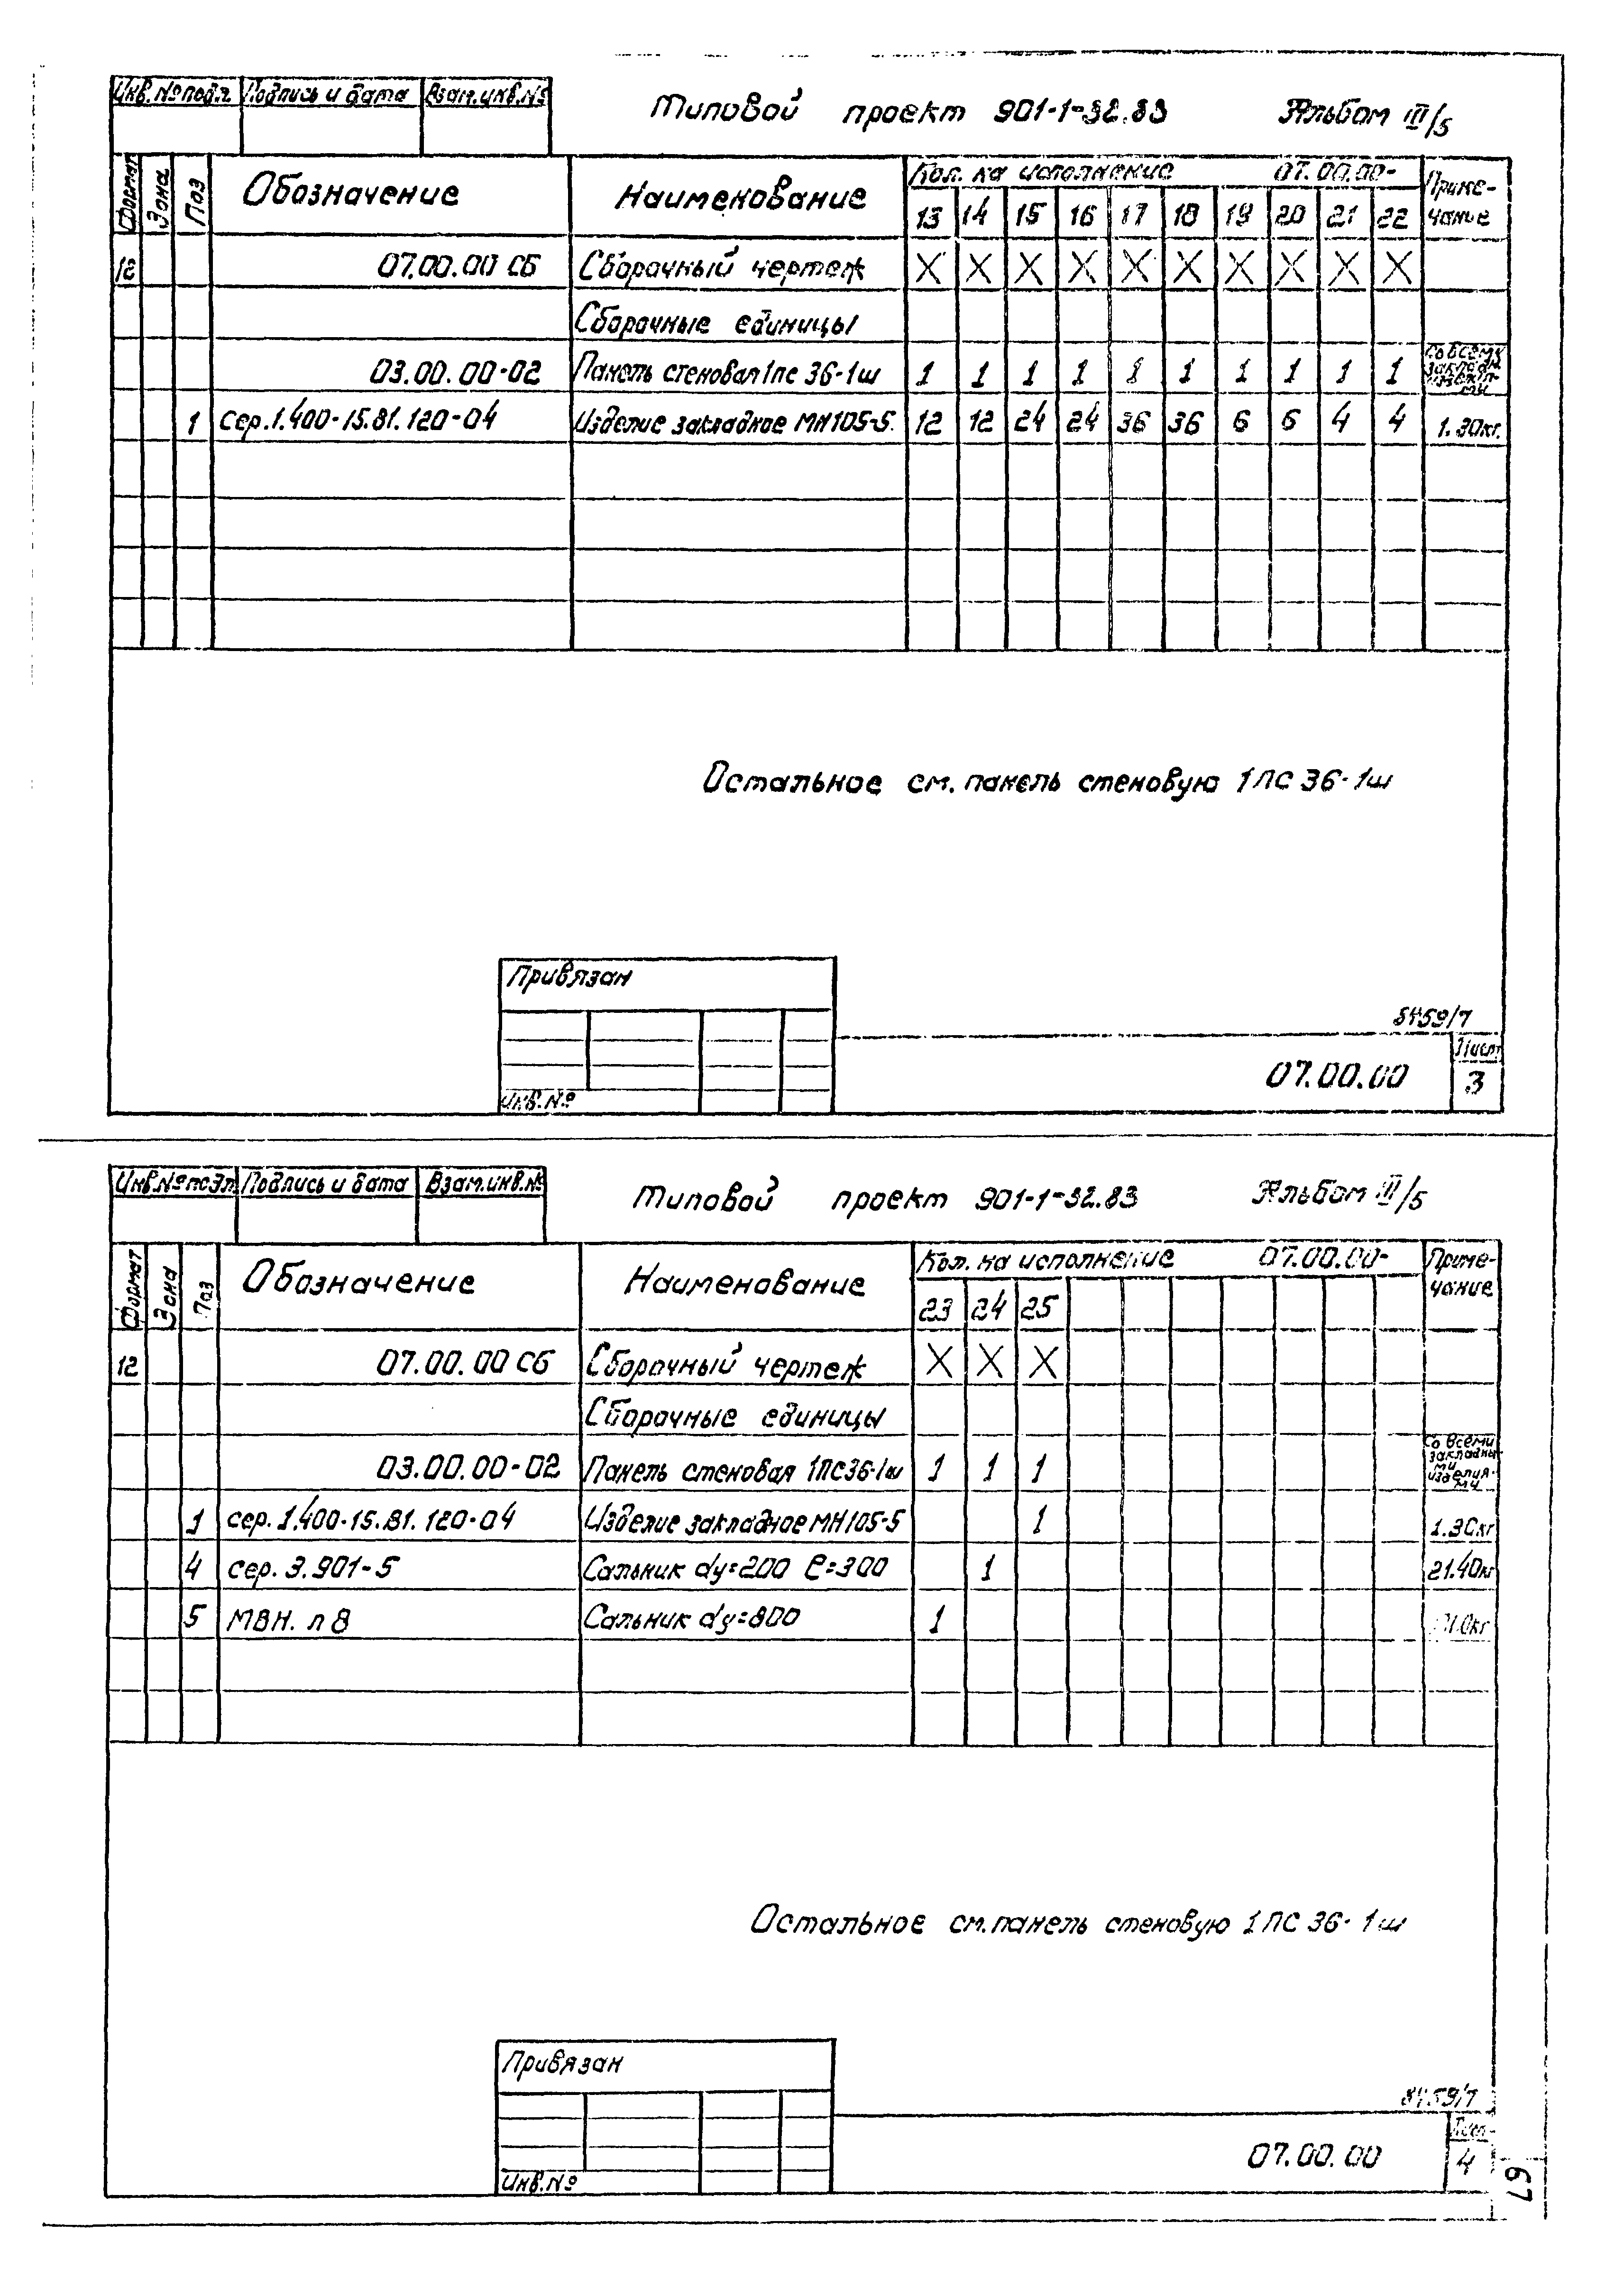 Инв.№подл. Подпись и дата Взам.инв.№
Типовой проект 901-1-32.83 Альбом III/5
Формат Зона Поз Обозначение Наименование Кол. на исполнение 07.00.00- Приме-
13 14 15 16 17 18 19 20 21 22 чание
12 07.00.00 СБ Сборочный чертеж X X X X X X X X X X
Сборочные единицы
03.00.00-02 Панель стеновая 1пс 36-1ш 1 1 1 1 1 1 1 1 1 1 Со всеми
1 сер.1.400-15.В1.120-04 Изделие закладное МН105-5. 12 12 24 24 36 36 6 6 4 4 1.30кг.
Остальное см. панель стеновую 1ПС 36-1ш
Привязан
Лист
07.00.00 3
Инв.№
Инв.№подл. Подпись и дата Взам.инв.№
Типовой проект 901-1-32.83 Альбом III/5
Формат Зона Поз Обозначение Наименование Кол. на исполнение 07.00.00- Приме-
23 24 25 чание
12 07.00.00 СБ Сборочный чертеж X X X
Сборочные единицы
03.00.00-02 Панель стеновая 1ПС36-1ш 1 1 1 Со всеми
закладны-
ми
изделия-
ми
1 сер.1.400-15.В1.120-04 Изделие закладное МН105-5 1 1.30кг
4 сер. 3.901-5 Сальник dy=200 ℓ=300 1 21.40кг
5 МВН. л 8 Сальник dy=800 1
Остальное см.панель стеновую 1ПС 36-1ш
Привязан
Лист
07.00.00 4
Инв.№
67